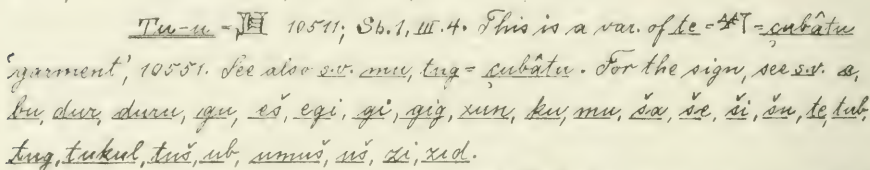 Tu-u = 𒌆 10511; Sb. 1, III. 4. This is a var. of te = = çubâtu
'garment', 10551. See also s.v. mu, tug = çubâtu. For the sign, see s.v. a,
bu, dur, duru, gu, eš, egi, gi, gig, xun, ku, mu, ša, še, ši, šu, te, tub,
tug, tukul, tuš, ub, umuš, uš, zi, zid.